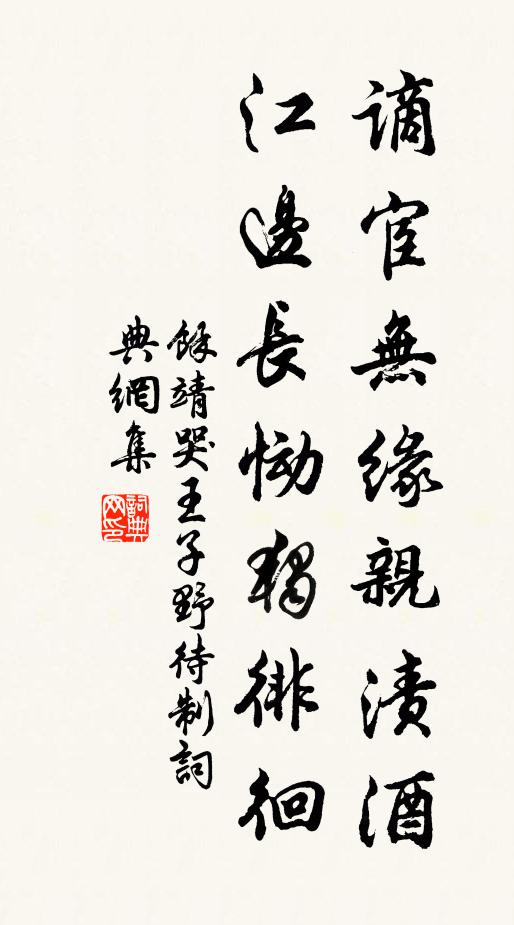 謫宦無緣親漬酒
江邊長慟獨徘徊
餘靖哭王子野待制詞
典網集
詞典
网印